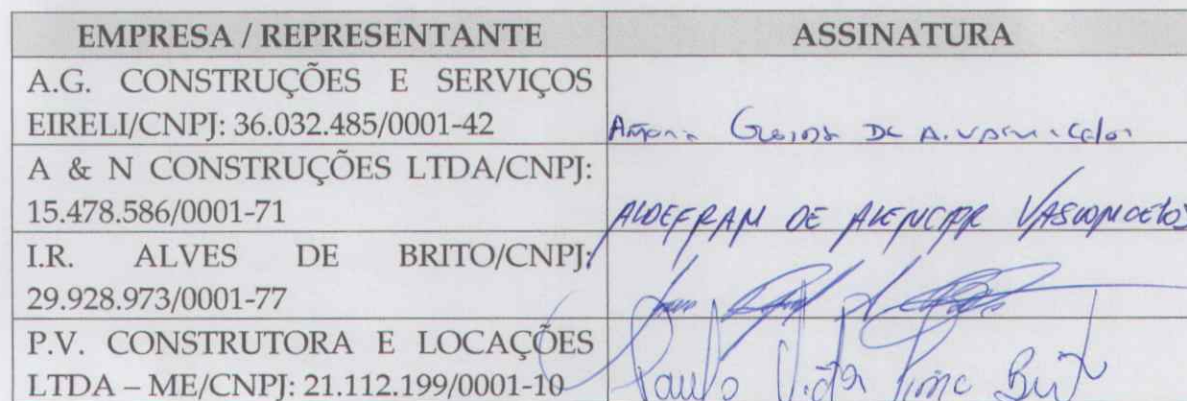 EMPRESA / REPRESENTANTE ASSINATURA
A.G. CONSTRUÇÕES E SERVIÇOS
EIRELI/CNPJ: 36.032.485/0001-42
DE A.
A & N CONSTRUÇÕES LTDA/CNPJ:
15.478.586/0001-71
ALDEFRAM DE ALENCAR VASCONCELOS
I.R. ALVES DE BRITO/CNPJ:
29.928.973/0001-77
P.V. CONSTRUTORA E LOCAÇÕES
LTDA – ME/CNPJ: 21.112.199/0001-10
Paulo Victor